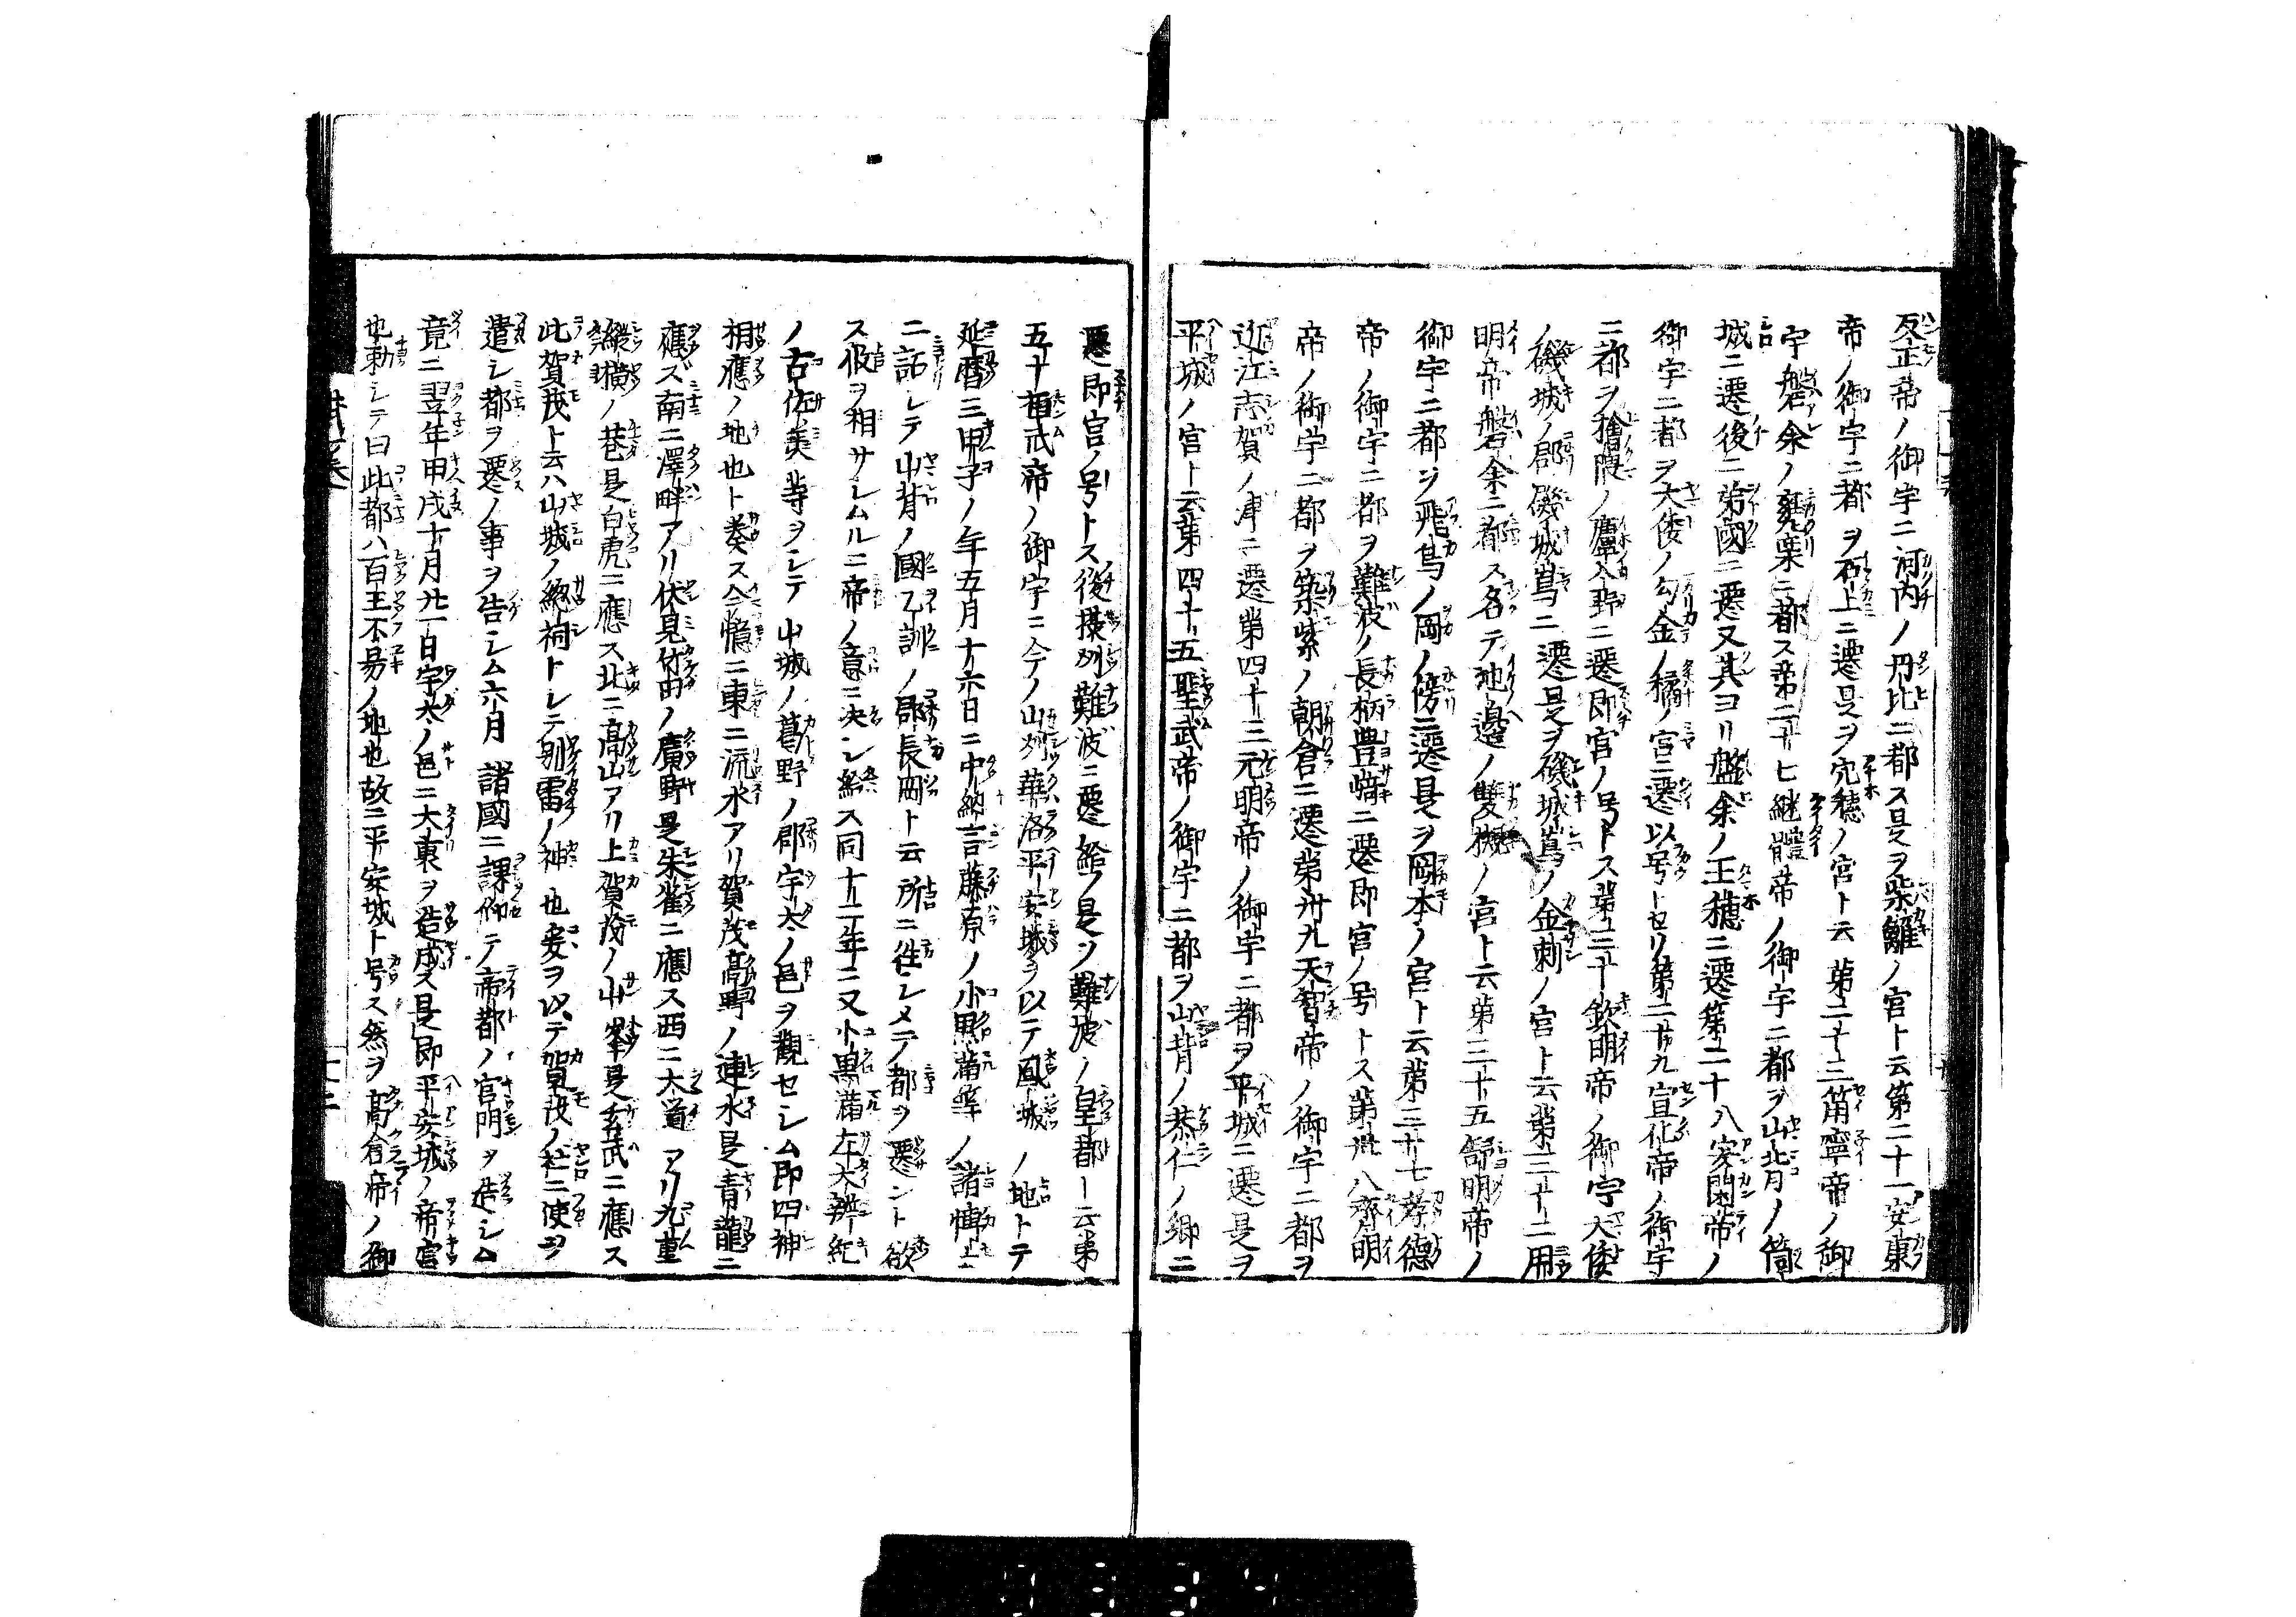 反正帝ノ御宇ニ河内ノ丹比ニ都ス是ヲ柴籬ノ宮ト云第二十一安康
帝ノ御宇ニ都ヲ石上ニ遷是ヲ穴穂ノ宮ト云第二十三清寧帝ノ御
宇磐余ノ甕栗ニ都ス第二十七継體帝ノ御宇ニ都ヲ山背ノ筒
城ニ遷後ニ弟國ニ遷又其ヨリ盤余ノ玉穂ニ遷第二十八安閑帝ノ
御宇ニ都ヲ大倭ノ勾金ノ橘ノ宮ニ遷以号トセリ第二十九宣化帝ノ御宇
ニ都ヲ檜隈ノ廬入野ニ遷即宮ノ号トス第三十欽明帝ノ御宇大倭
ノ磯城ノ郡磯城嶌ニ遷是ヲ磯城嶌ノ金刺ノ宮ト云第三十二用
明帝磐余ニ都ス名テ池邊ノ雙槻ノ宮ト云第三十五舒明帝ノ
御宇ニ都ヲ飛鳥ノ岡ノ傍ニ遷是ヲ岡本ノ宮ト云第三十七孝徳
帝ノ御宇ニ都ヲ難波ノ長柄豊﨑ニ遷即宮ノ号トス第卅八齊明
帝ノ御宇ニ都ヲ築紫ノ朝倉ニ遷第卅九天智帝ノ御宇ニ都ヲ
近江志賀ノ津ニ遷第四十三元明帝ノ御宇ニ都ヲ平城ニ遷是ヲ
平城ノ宮ト云第四十五聖武帝ノ御宇ニ都ヲ山背ノ恭仁ノ郷ニ
遷即宮ノ号トス後摂州難波ニ遷給フ是ヲ難波ノ皇都ト云第
五十桓武帝ノ御宇ニ今ノ山州華洛平安城ヲ以テ鳳城ノ地トテ
延暦三甲子ノ年五月十六日ニ中納言藤原ノ小黒蒲等ノ諸
ニ詔シテ山背ノ國乙訓ノ郡長岡ト云所ニ徃シメテ都ヲ遷ント欲
ス仮ヲ相サシムルニ帝ノ意ニ決シ給ス同十二年ニ又小黒蒲左大辨紀
ノ古佐美等ヲシテ山城ノ葛野ノ郡宇太ノ邑ヲ觀セシム即四神
相應ノ地也ト奏ス今憶ニ東ニ流水アリ賀茂髙野ノ連水是青龍ニ
應ズ南ニ澤畔アリ伏見竹田ノ廣野是朱雀ニ應ス西ニ大道アリ九重
縱横ノ巷是白虎ニ應ス北ニ髙山アリ上賀茂ノ山峯是玄武ニ應ス
此賀茂ト云ハ山城ノ總祠トシテ別雷ノ神也爰ヲ以テ賀茂ノ社ニ使ヲ
遣シ都ヲ遷ノ事ヲ告シム六月諸國ニ課仰テ帝都ノ宮門ヲ造シム
竟ニ翌年甲戌十月廿一日宇太ノ邑ニ大裏ヲ造成ス是即平安城ノ帝宮
也勅シテ曰此都ハ百王不易ノ地也故ニ平安城ト号ス然ヲ髙倉帝ノ御